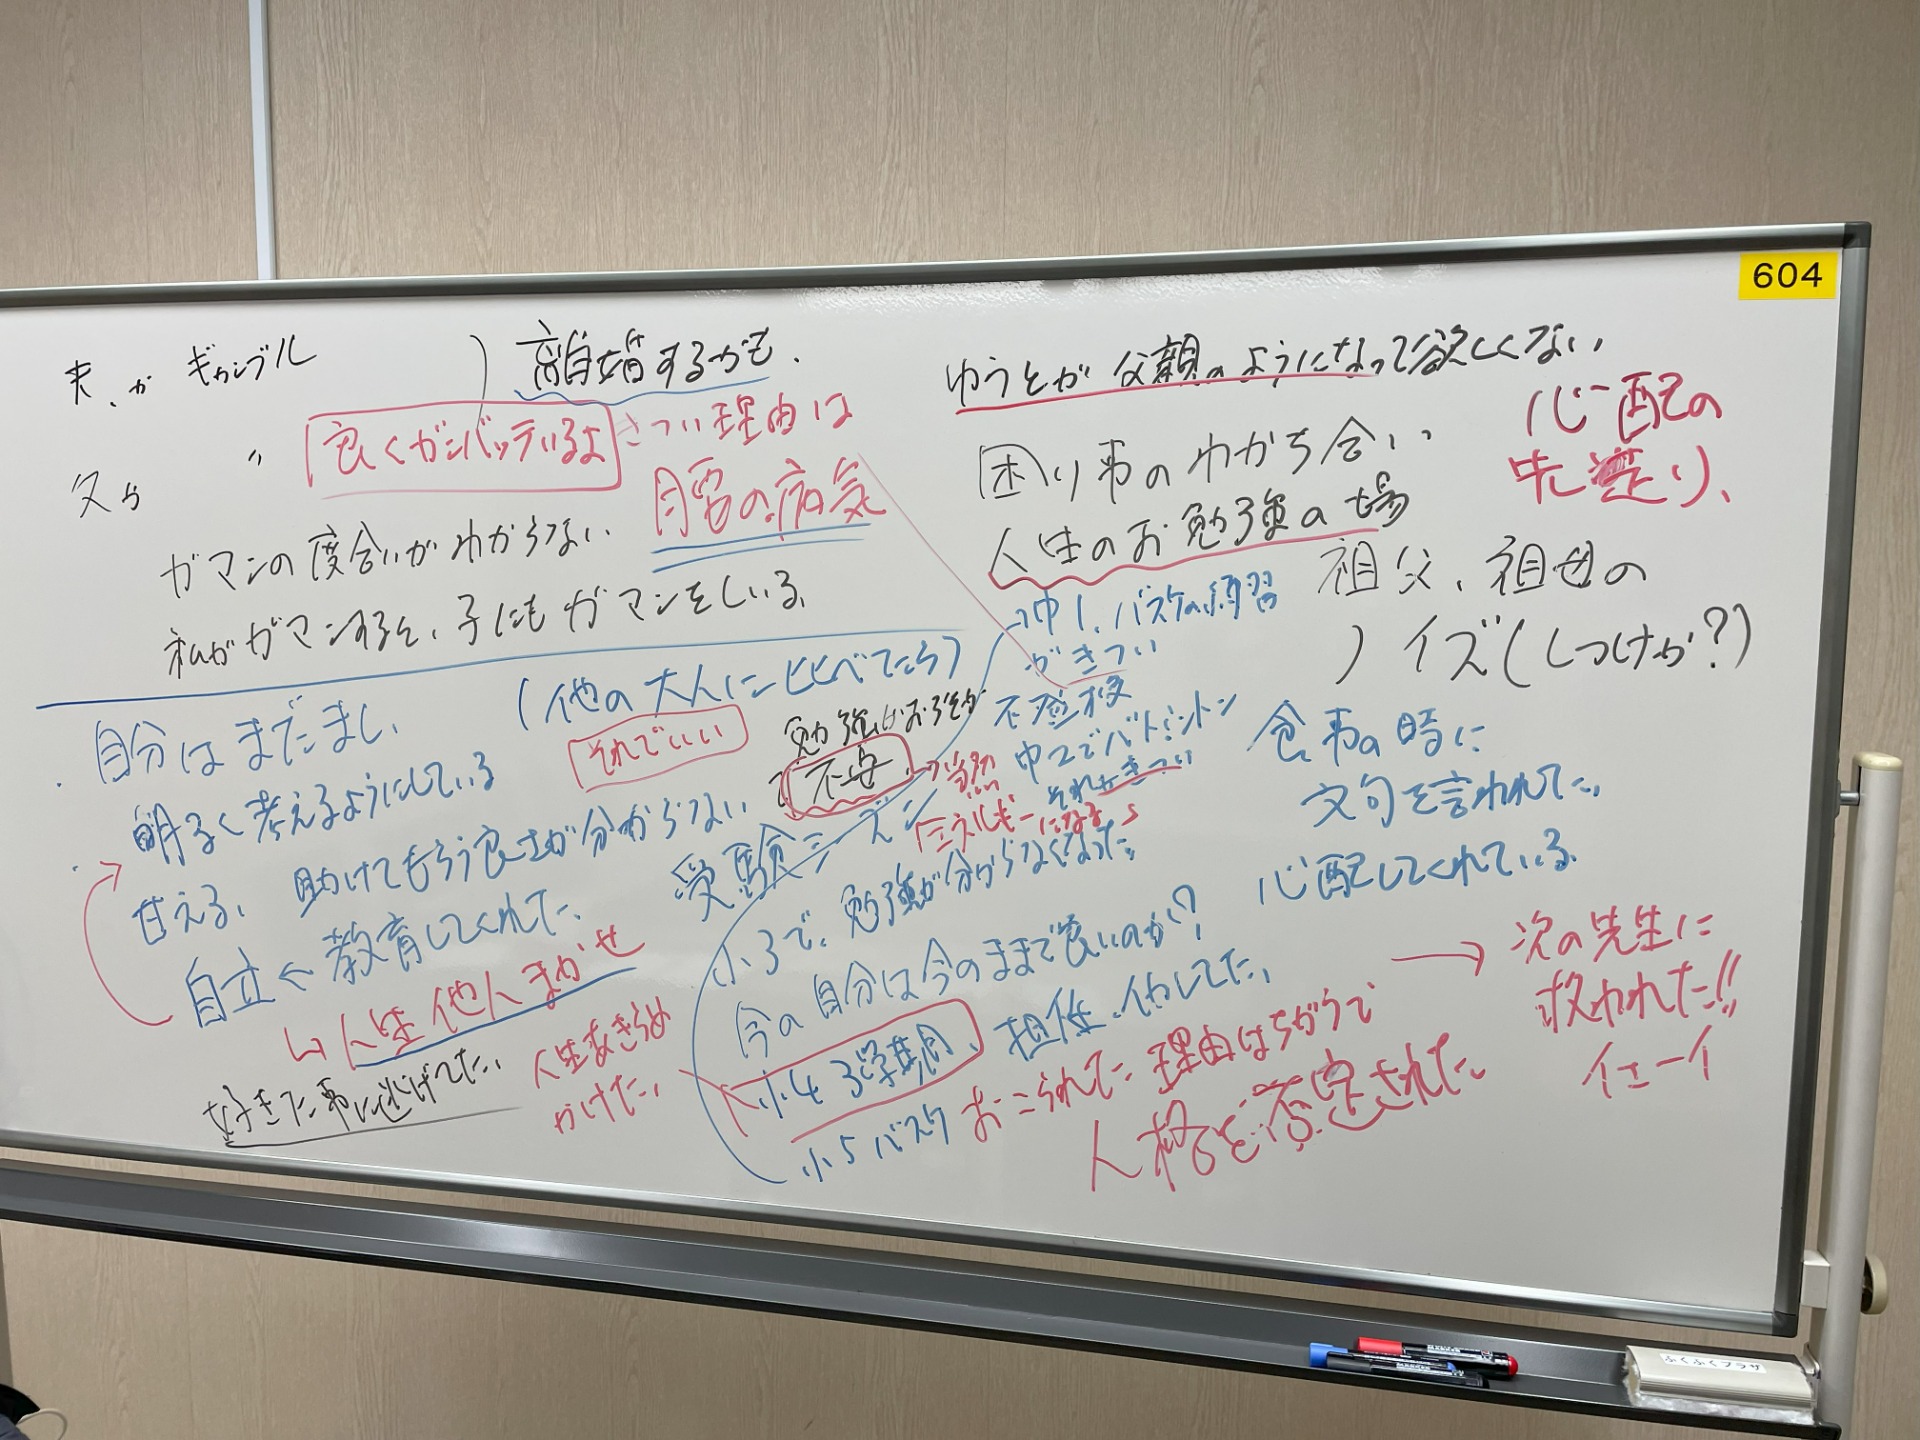 604
夫、が ギャンブル
離婚するかも.
父が 〃
良くガンバッているよ
きつい理由は
脳の病気
ガマンの度合いがわからない.
私がガマンすると、子にもガマンをしいる、
(他の大人に比べたら)
・自分はまだまし、
それでいい
・明るく考えるようにしている
甘える、助けてもらう良さが分からない
自立 ← 教育してくれた、
人生他人まかせ
好きな事に逃げてた.
人生あきらめ
かけた.
ゆうとが父親のようになって欲しくない.
心配の
先走り、
困り事のわかち合い.
人生のお勉強の場
祖父、祖母の
ノイズ(しつけか?)
中1. バスケの練習
がきつい
不登校
勉強がおろそか
不安
中2でバトミントン
それもきつい
エネルギーになる
受験シーズン
小3で、勉強が分からなくなった.
今の自分は今のままで良いのか?
小4 3学期、担任、他してた、
小5 バスケ おこられた理由はちがうで
人格を否定された
食事の時に
文句を言われてた、
心配してくれている.
→ 次の先生に
救われた!!
イエーイ
ふくふくプラザ